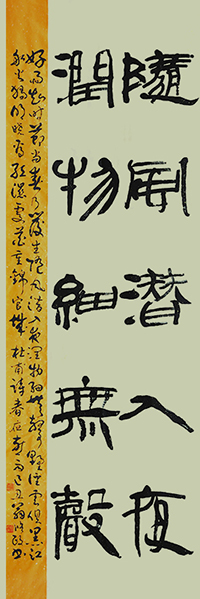 隨風潛入夜
潤物細無聲
好雨知時節當春乃發生隨風潛入夜潤物細無聲野徑雲俱黑江
船火獨明曉看紅濕處花重錦官城杜甫詩春夜喜雨己丑翁書